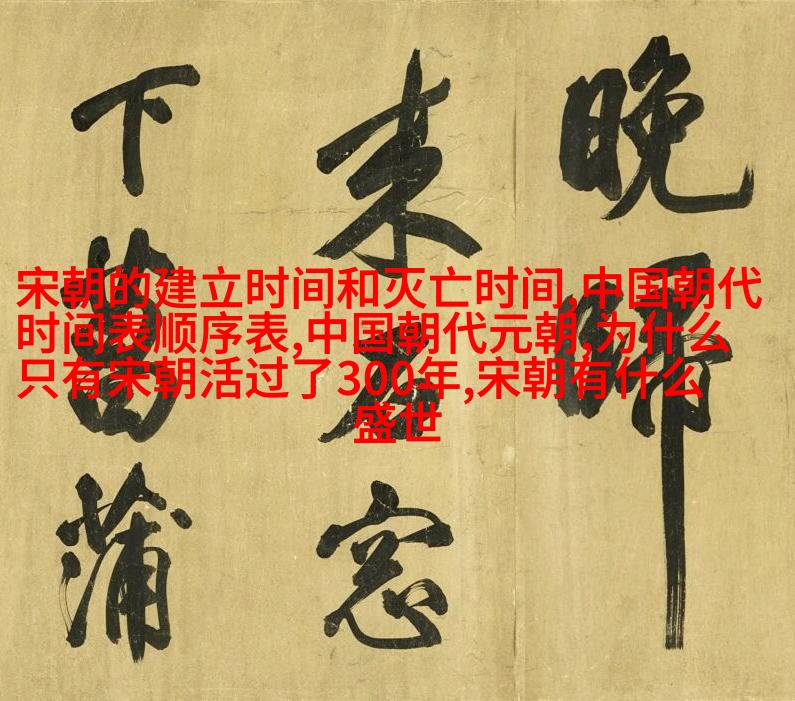 宋朝的建立时间和灭亡时间,中国朝代
时间表顺序表,中国朝代元朝,为什么
只有宋朝活过了300年,宋朝有什么
盛世
晚歸
来石窓
下菖蒲